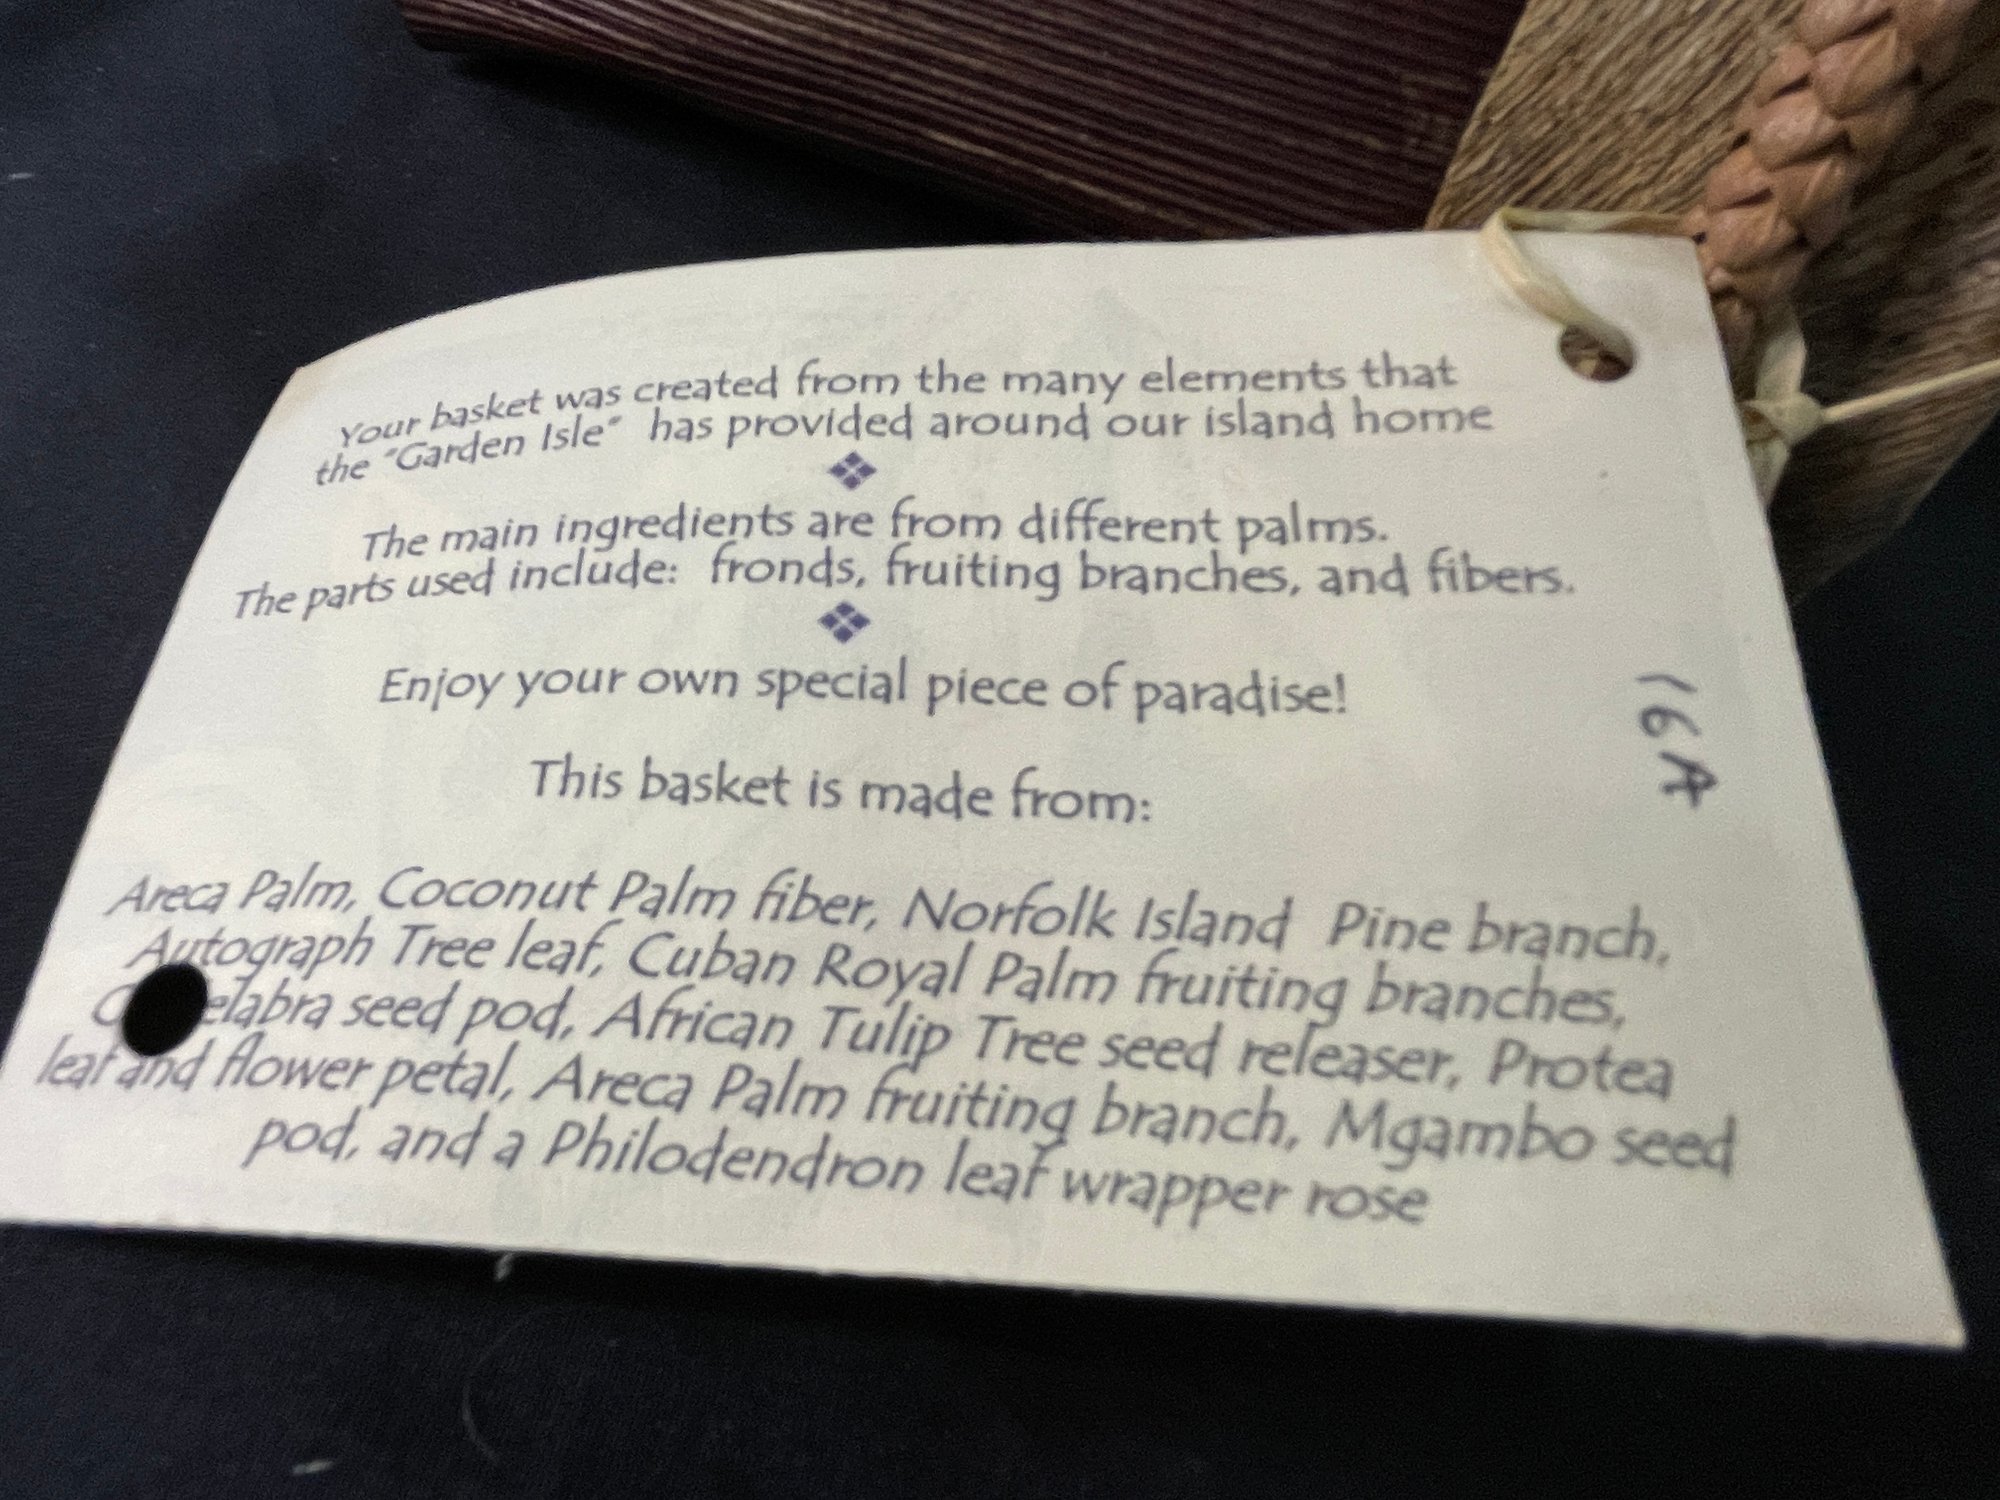 Your basket was created from the many elements that
the "Garden Isle" has provided around our island home
The main ingredients are from different palms.
The parts used include: fronds, fruiting branches, and fibers.
Enjoy your own special piece of paradise!
16A
This basket is made from:
Areca Palm, Coconut Palm fiber, Norfolk Island Pine branch,
Autograph Tree leaf, Cuban Royal Palm fruiting branches,
seed pod, African Tulip Tree seed releaser, Protea
leaf and flower petal, Areca Palm fruiting branch, Mgambo seed
pod, and a Philodendron leaf wrapper rose